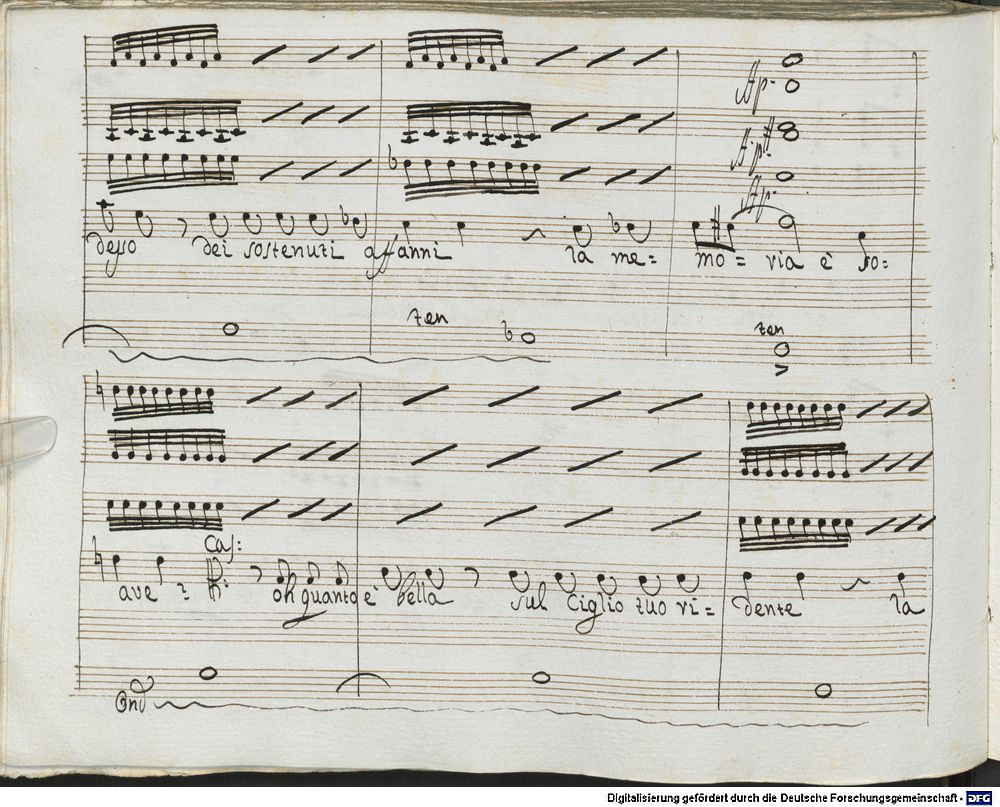 Ap.
Ap.
Ap.
desso dei sostenuti affanni la me= mo= ria è so=
ten ten
Cas:
ave= oh quanto è bella sul Ciglio tuo ri= dente la
Ond
Digitalisierung gefördert durch die Deutsche Forschungsgemeinschaft - DFG